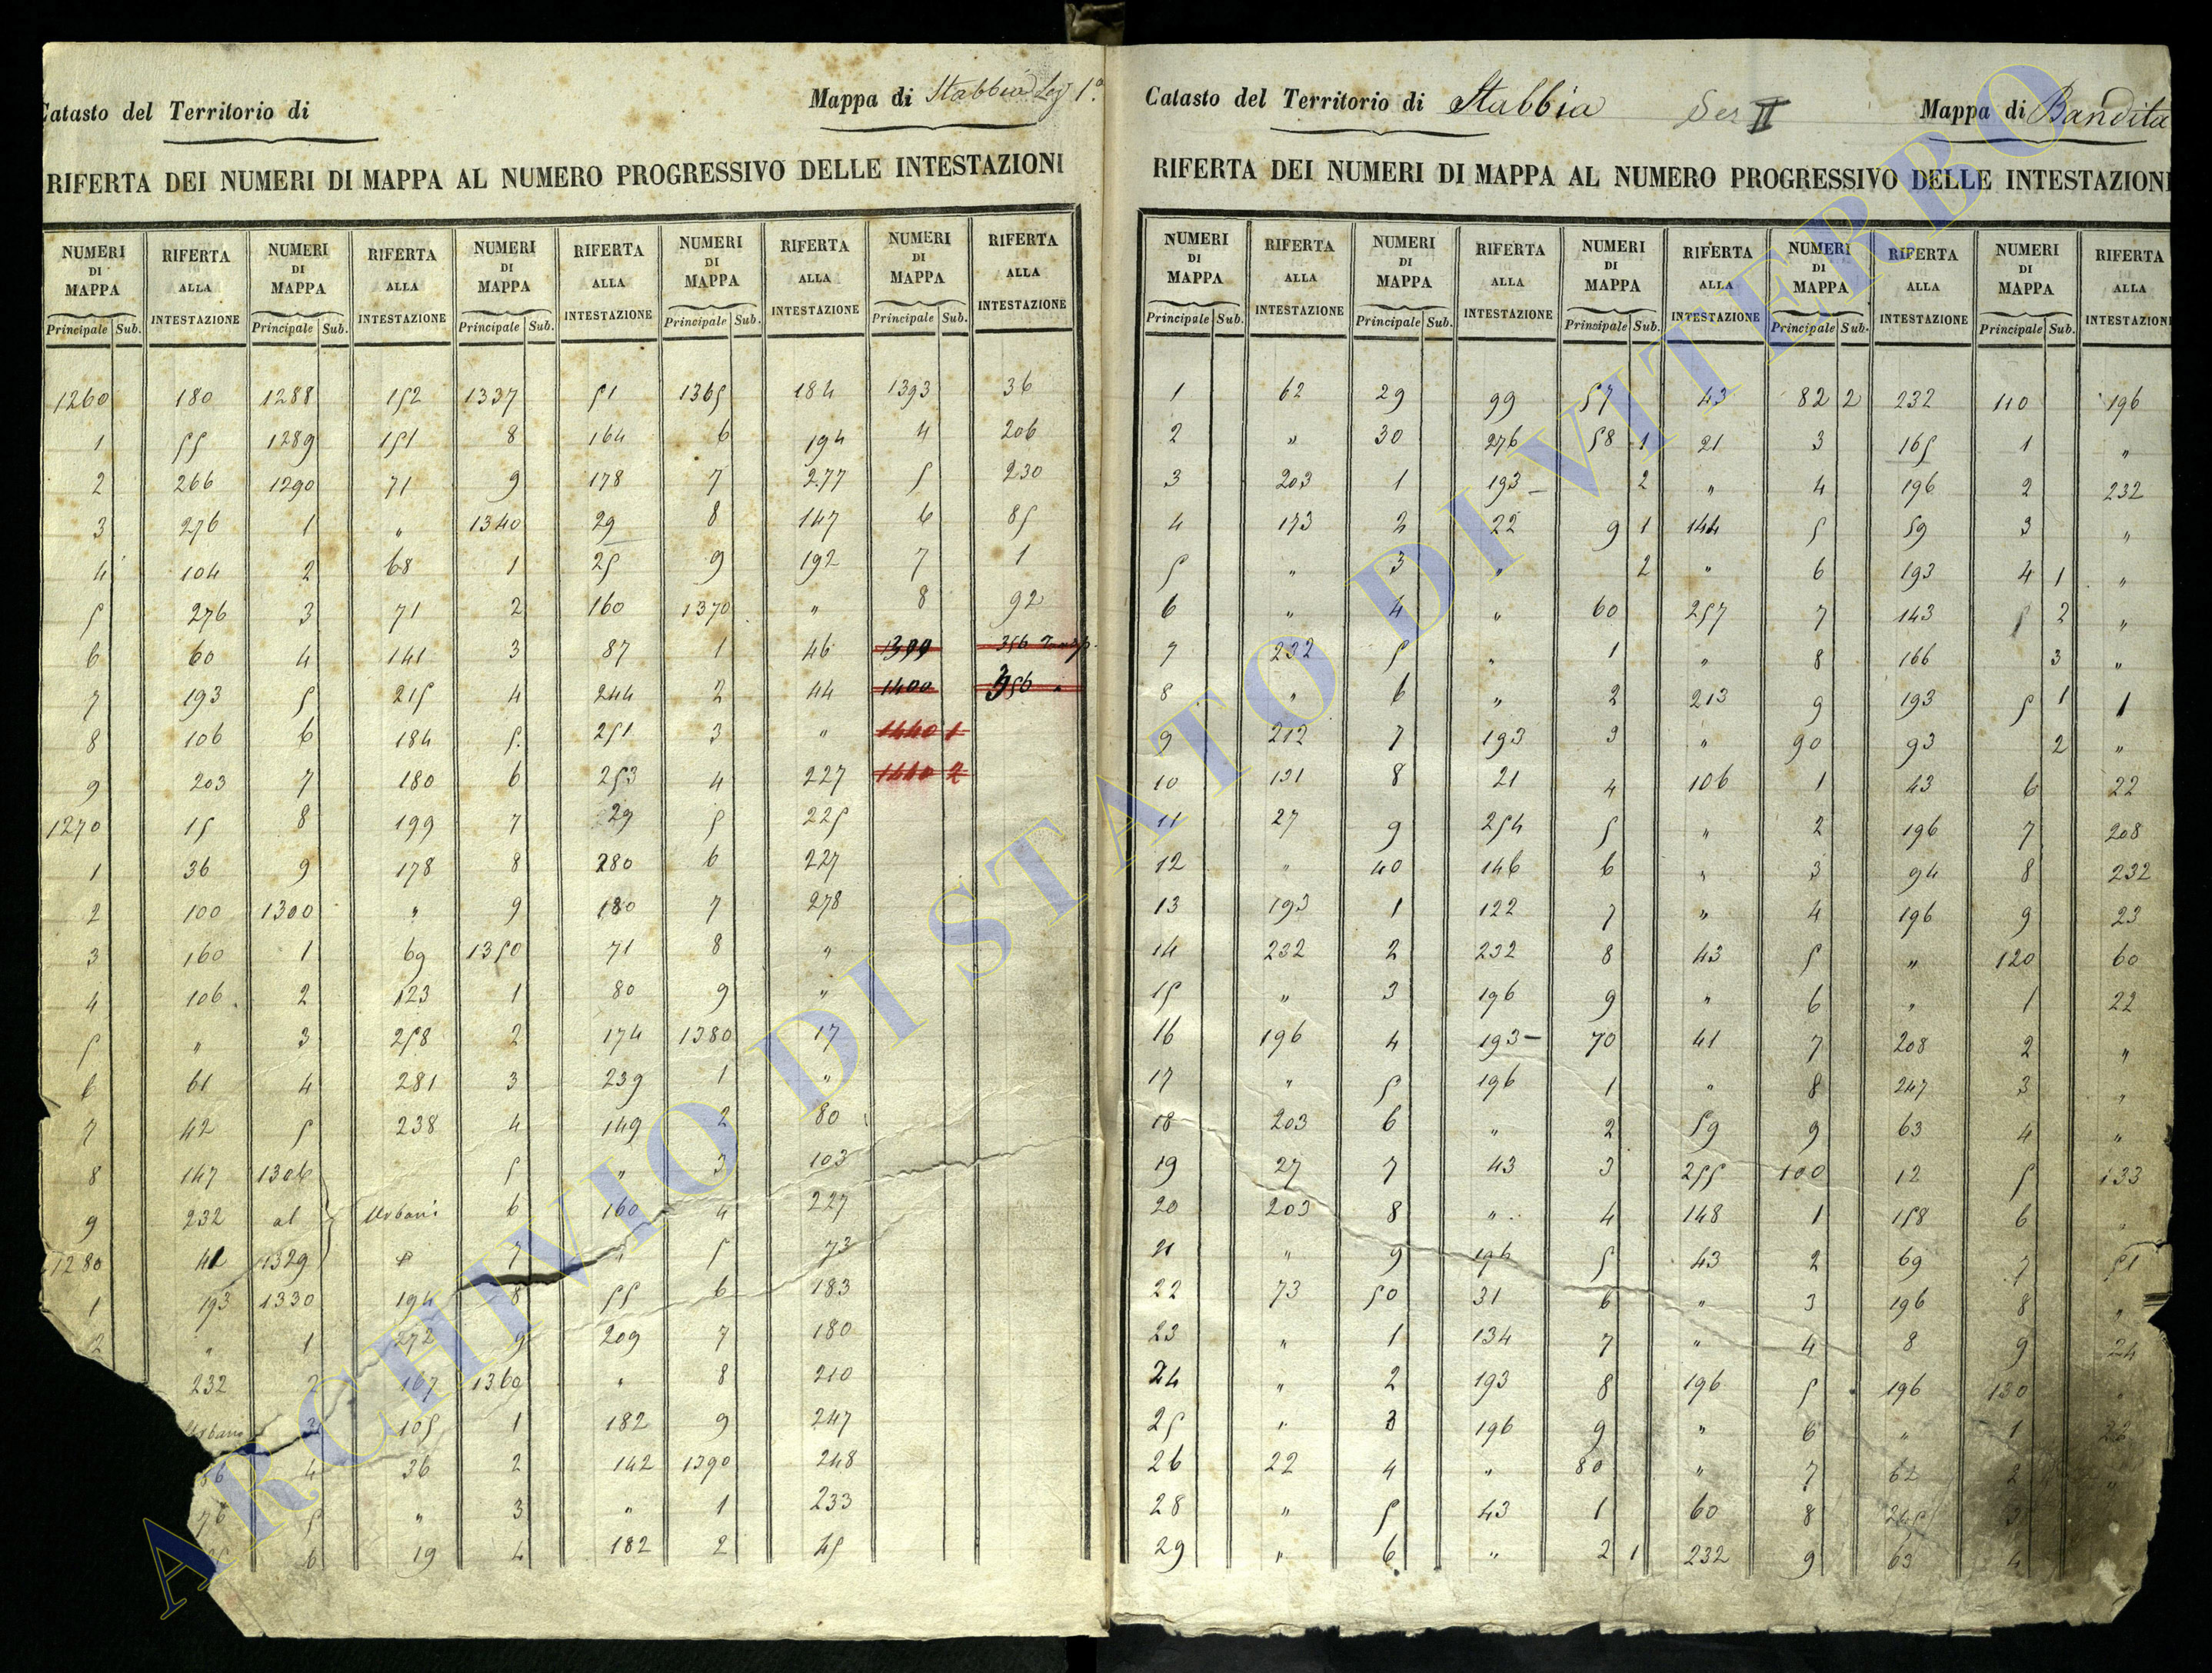 Catasto del Territorio di Mappa di Stabbia Sez 1.ª
RIFERTA DEI NUMERI DI MAPPA AL NUMERO PROGRESSIVO DELLE INTESTAZIONI
NUMERI DI MAPPA RIFERTA ALLA INTESTAZIONE NUMERI DI MAPPA RIFERTA ALLA INTESTAZIONE NUMERI DI MAPPA RIFERTA ALLA INTESTAZIONE NUMERI DI MAPPA RIFERTA ALLA INTESTAZIONE NUMERI DI MAPPA RIFERTA ALLA INTESTAZIONE
Principale Sub. Principale Sub. Principale Sub. Principale Sub. Principale Sub.
1260 180 1288 152 1337 51 1365 184 1393 36
1 55 1289 151 8 164 6 194 4 206
2 266 1290 71 9 178 7 277 5 230
3 276 1 " 1340 29 8 147 6 85
4 104 2 68 1 25 9 192 7 1
5 276 3 71 2 160 1370 " 8 92
6 60 4 141 3 87 1 46 1399 356
7 193 5 215 4 244 2 44 1400 356 "
8 106 6 184 5 251 3 " 1440 1
9 203 7 180 6 253 4 227 1440 2
1270 15 8 199 7 29 5 225
1 36 9 178 8 280 6 227
2 100 1300 " 9 180 7 278
3 160 1 69 1350 71 8 "
4 106 2 123 1 80 9 "
5 " 3 258 2 174 1380 17
6 61 4 281 3 239 1 "
7 42 5 238 4 149 2 80
8 147 1306 5 " 3 103
9 232 al Urbani 6 160 4 227
1280 41 1329 7 " 5 73
1 193 1330 194 8 55 6 183
2 " 1 272 9 209 7 180
232 2 167 1360 " 8 210
Urbano 3 105 1 182 9 247
56 4 36 2 142 1390 248
76 5 " 3 " 1 233
6 19 4 182 2 45
Catasto del Territorio di Stabbia Sez II Mappa di Bandita
RIFERTA DEI NUMERI DI MAPPA AL NUMERO PROGRESSIVO DELLE INTESTAZIONI
NUMERI DI MAPPA RIFERTA ALLA INTESTAZIONE NUMERI DI MAPPA RIFERTA ALLA INTESTAZIONE NUMERI DI MAPPA RIFERTA ALLA INTESTAZIONE NUMERI DI MAPPA RIFERTA ALLA INTESTAZIONE NUMERI DI MAPPA RIFERTA ALLA INTESTAZIONE
Principale Sub. Principale Sub. Principale Sub. Principale Sub. Principale Sub.
1 62 29 99 57 43 82 2 232 110 196
2 " 30 276 58 1 21 3 165 1 "
3 203 1 193 2 " 4 196 2 232
4 173 2 22 9 1 144 5 59 3 "
5 " 3 " 2 " 6 193 4 1 "
6 " 4 " 60 257 7 143 5 2 "
7 232 5 " 1 " 8 166 3 "
8 " 6 " 2 213 9 193 5 1 1
9 212 7 193 3 " 90 93 2 "
10 131 8 21 4 106 1 43 6 22
11 27 9 254 5 " 2 196 7 208
12 " 40 146 6 " 3 94 8 232
13 193 1 122 7 " 4 196 9 23
14 232 2 232 8 43 5 " 120 60
15 " 3 196 9 " 6 " 1 22
16 196 4 193 70 41 7 208 2 "
17 " 5 196 1 " 8 247 3 "
18 203 6 " 2 59 9 63 4 "
19 27 7 43 3 255 100 12 5 133
20 203 8 " 4 148 1 158 6 "
21 " 9 196 5 43 2 69 7 51
22 73 50 31 6 " 3 196 8 "
23 " 1 134 7 " 4 8 9 24
24 " 2 193 8 196 5 196 130 "
25 " 3 196 9 " 6 " 1 22
26 22 4 " 80 " 7 62 2 "
28 " 5 43 1 60 8 245 3
29 " 6 " 2 1 232 9 63 4
ARCHIVIO DI STATO DI VITERBO